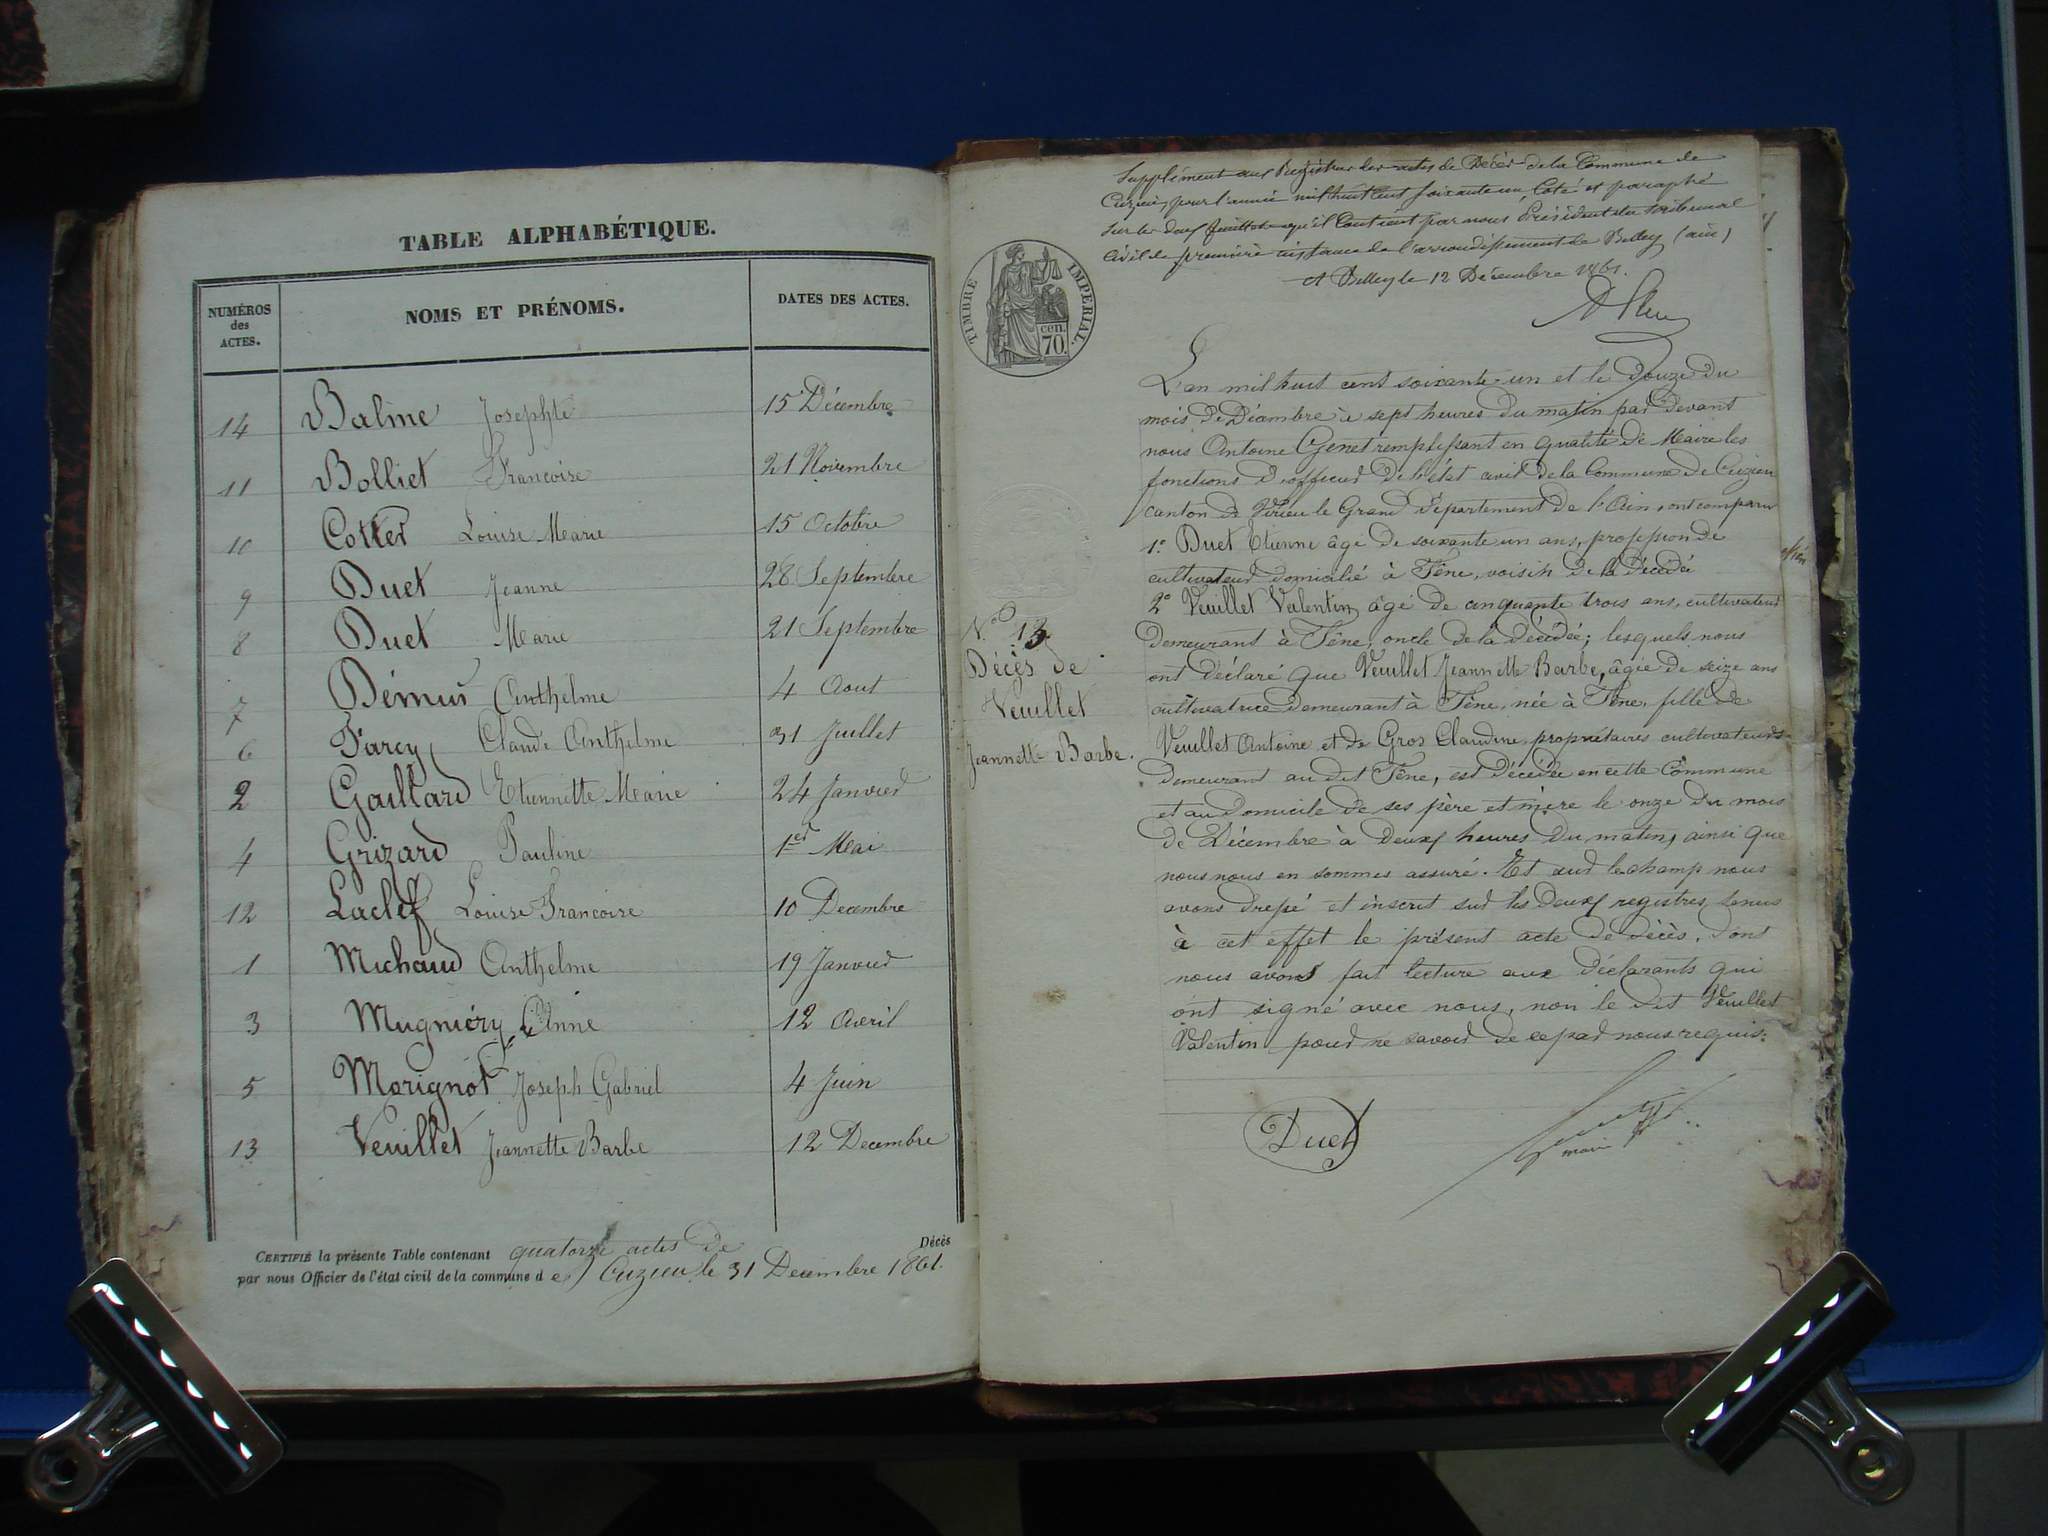 TABLE ALPHABÉTIQUE.
NUMÉROS des ACTES. NOMS ET PRÉNOMS. DATES DES ACTES.
14 Baline Josephte 15 Décembre
11 Bolliet Francoise 21 Novembre
10 Cotter Louise Marie 15 Octobre
9 Duet Jeanne 28 Septembre
8 Duet Marie 21 Septembre
7 Démus Anthelme 4 Aout
6 Farcy Claude Anthelme 31 Juillet
2 Gaillard Etiennette Marie 24 Janvier
4 Grizard Pauline 1er Mai
12 Laclef Louise Francoise 10 Decembre
1 Michaud Anthelme 19 Janvier
3 Mugniéry Anne 12 Avril
5 Morignot Joseph Gabriel 4 Juin
13 Veuillet Jeannette Barbe 12 Decembre
CERTIFIÉ la présente Table contenant quatorze actes de Décès
par nous Officier de l'état civil de la commune de Cuzieu le 31 Decembre 1861.
Supplément aux Registres des actes de Décès de la Commune de
Cuzieu, pour l'année mil huit cent soixante un Coté et paraphé
sur les deux feuillets qu'il Contient par nous Président du tribunal
Civil de première instance de l'arrondissement de Belley (ain)
A Belley le 12 Décembre 1861.
TIMBRE IMPERIAL.
cen.
70.
L'an mil huit cent soixante un et le douze du
mois de Décembre à sept heures du matin par devant
nous Antoine Genet remplissant en qualité de Maire les
fonctions d'officier de l'état civil de la Commune de Cuzieu
canton de Virieu le Grand Département de l'Ain, ont comparu
1° Duet Etienne âgé de soixante un ans, profession de
cultivateur domicilié à Fêne, voisin de la décédée
2° Veuillet Valentin, âgé de cinquante trois ans, cultivateur
demeurant à Fêne, oncle de la décédée; lesquels nous
ont déclaré que Veuillet Jeannette Barbe, âgée de seize ans
cultivatrice demeurant à Fêne, née à Fêne, fille de
Veuillet Antoine et de Gros Claudine, propriétaires cultivateurs
demeurant au dit Fêne, est décédée en cette Commune
et au domicile de ses père et mère le onze du mois
de Décembre à deux heures du matin, ainsi que
nous nous en sommes assuré. Et sur le champ nous
avons dressé et inscrit sur les deux registres tenus
à cet effet le présent acte de décès, dont
nous avons fait lecture aux déclarants qui
ont signé avec nous, non le dit Veuillet
Valentin pour ne savoir de ce par nous requis.
N.° 13
Décès de
Veuillet
Jeannette Barbe.
Duet
Genet
maire